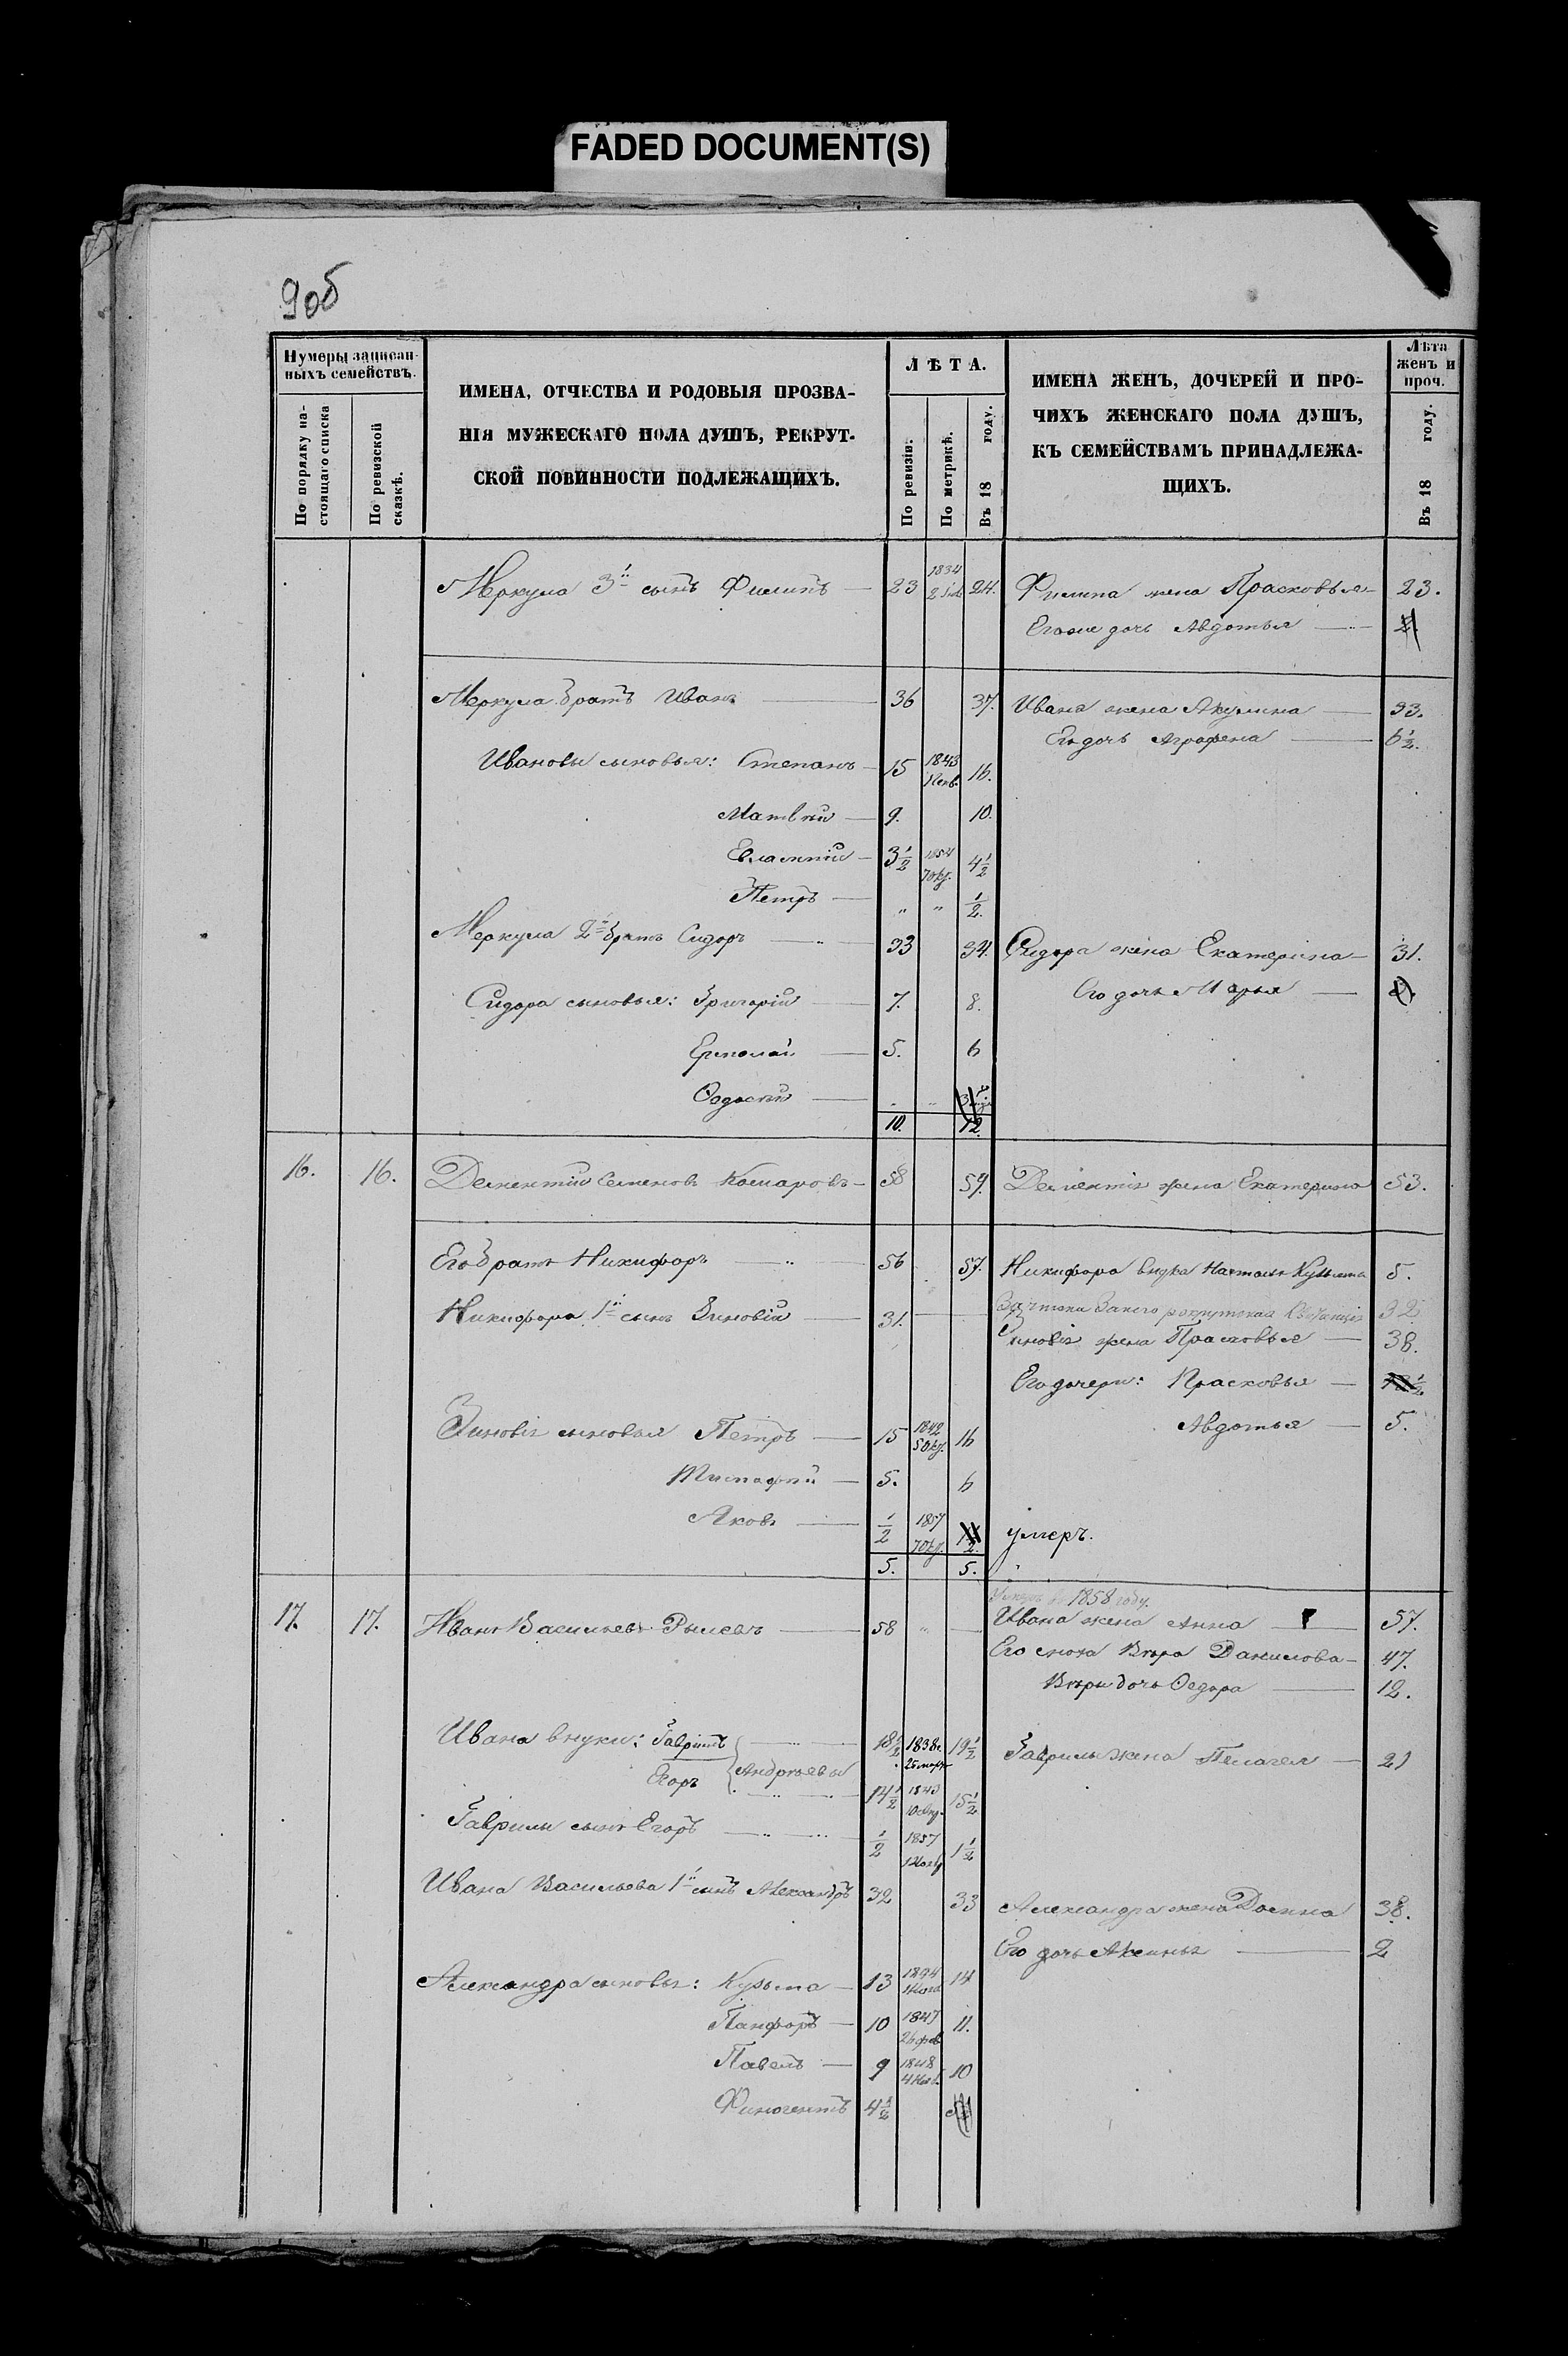 FADED DOCUMENT(S)
9об
Нумеры записан-
ныхъ семействъ.
По порядку на-
стоящаго списка
По ревизской
сказкѣ.
ИМЕНА, ОТЧЕСТВА И РОДОВЫЯ ПРОЗВА-
НІЯ МУЖЕСКАГО ПОЛА ДУШЪ, РЕКРУТ-
СКОЙ ПОВИННОСТИ ПОДЛЕЖАЩИХЪ.
ЛѢТА.
По ревизіи.
По метрикѣ.
Въ 18 году.
ИМЕНА ЖЕНЪ, ДОЧЕРЕЙ И ПРО-
ЧИХЪ ЖЕНСКАГО ПОЛА ДУШЪ,
КЪ СЕМЕЙСТВАМЪ ПРИНАДЛЕЖА-
ЩИХЪ.
Лѣта
женъ и
проч.
Въ 18 году.
Меркула 3й сынъ Филипъ — 23 1834 24. Филипа жена Прасковья — 23.
Егоже дочь Авдотья —
Меркула братъ Иванъ — 36 37. Ивана жена Акулина — 33.
Его дочь Аграфена — 6½.
Ивановы сыновья: Степанъ — 15 1843 16.
Матвѣй — 9. 10.
Евлампій — 3½ 1854 7 окт. 4½
Петръ — " " ½.
Меркула 2й братъ Сидоръ — 33 34. Сидора жена Екатерина — 31.
Сидора сыновья: Григорій — 7. 8. Его дочь Марья —
Ермолай — 5. 6
Ѳодосѣй —
10. 12.
16. 16. Дементій Семеновъ Комаровъ — 58 59. Дементія жена Екатерина 53.
Его братъ Никифоръ — 56 57. Никифора внука Наталья Кузьмина 5.
Никифора 1й сынъ Зиновій — 31. —
Зиновія жена Прасковья — 38.
Его дочери: Прасковья —
Зиновія сыновья Петръ — 15 1842 5 окт. 16 Авдотья — 5.
Тимофѣй — 5. 6
Яковъ — ½ 1857 7 окт. умеръ.
5. 5.
1858 году.
17. 17. Иванъ Васильевъ — 58 " — Ивана жена Анна — 57.
Его сноха Вѣра Данилова — 47.
Вѣры дочь Ѳедора — 12.
Ивана внуки: Гаврилъ — 18½ 1838 г. 25 мар. 19½ Гаврилы жена Пелагея — 21
Егоръ } Андрѣевы 14½ 1843 15½
Гаврилы сынъ Егоръ — ½ 1857 1½
Ивана Васильева 1й сынъ Александръ 32 33 Александра жена 38.
Его дочь Аксинья — 2
Александра сыновья: Кузьма — 13 1844 14
— 10 1847 26 фев. 11.
Павелъ — 9 1848 10
Финогентъ 4½